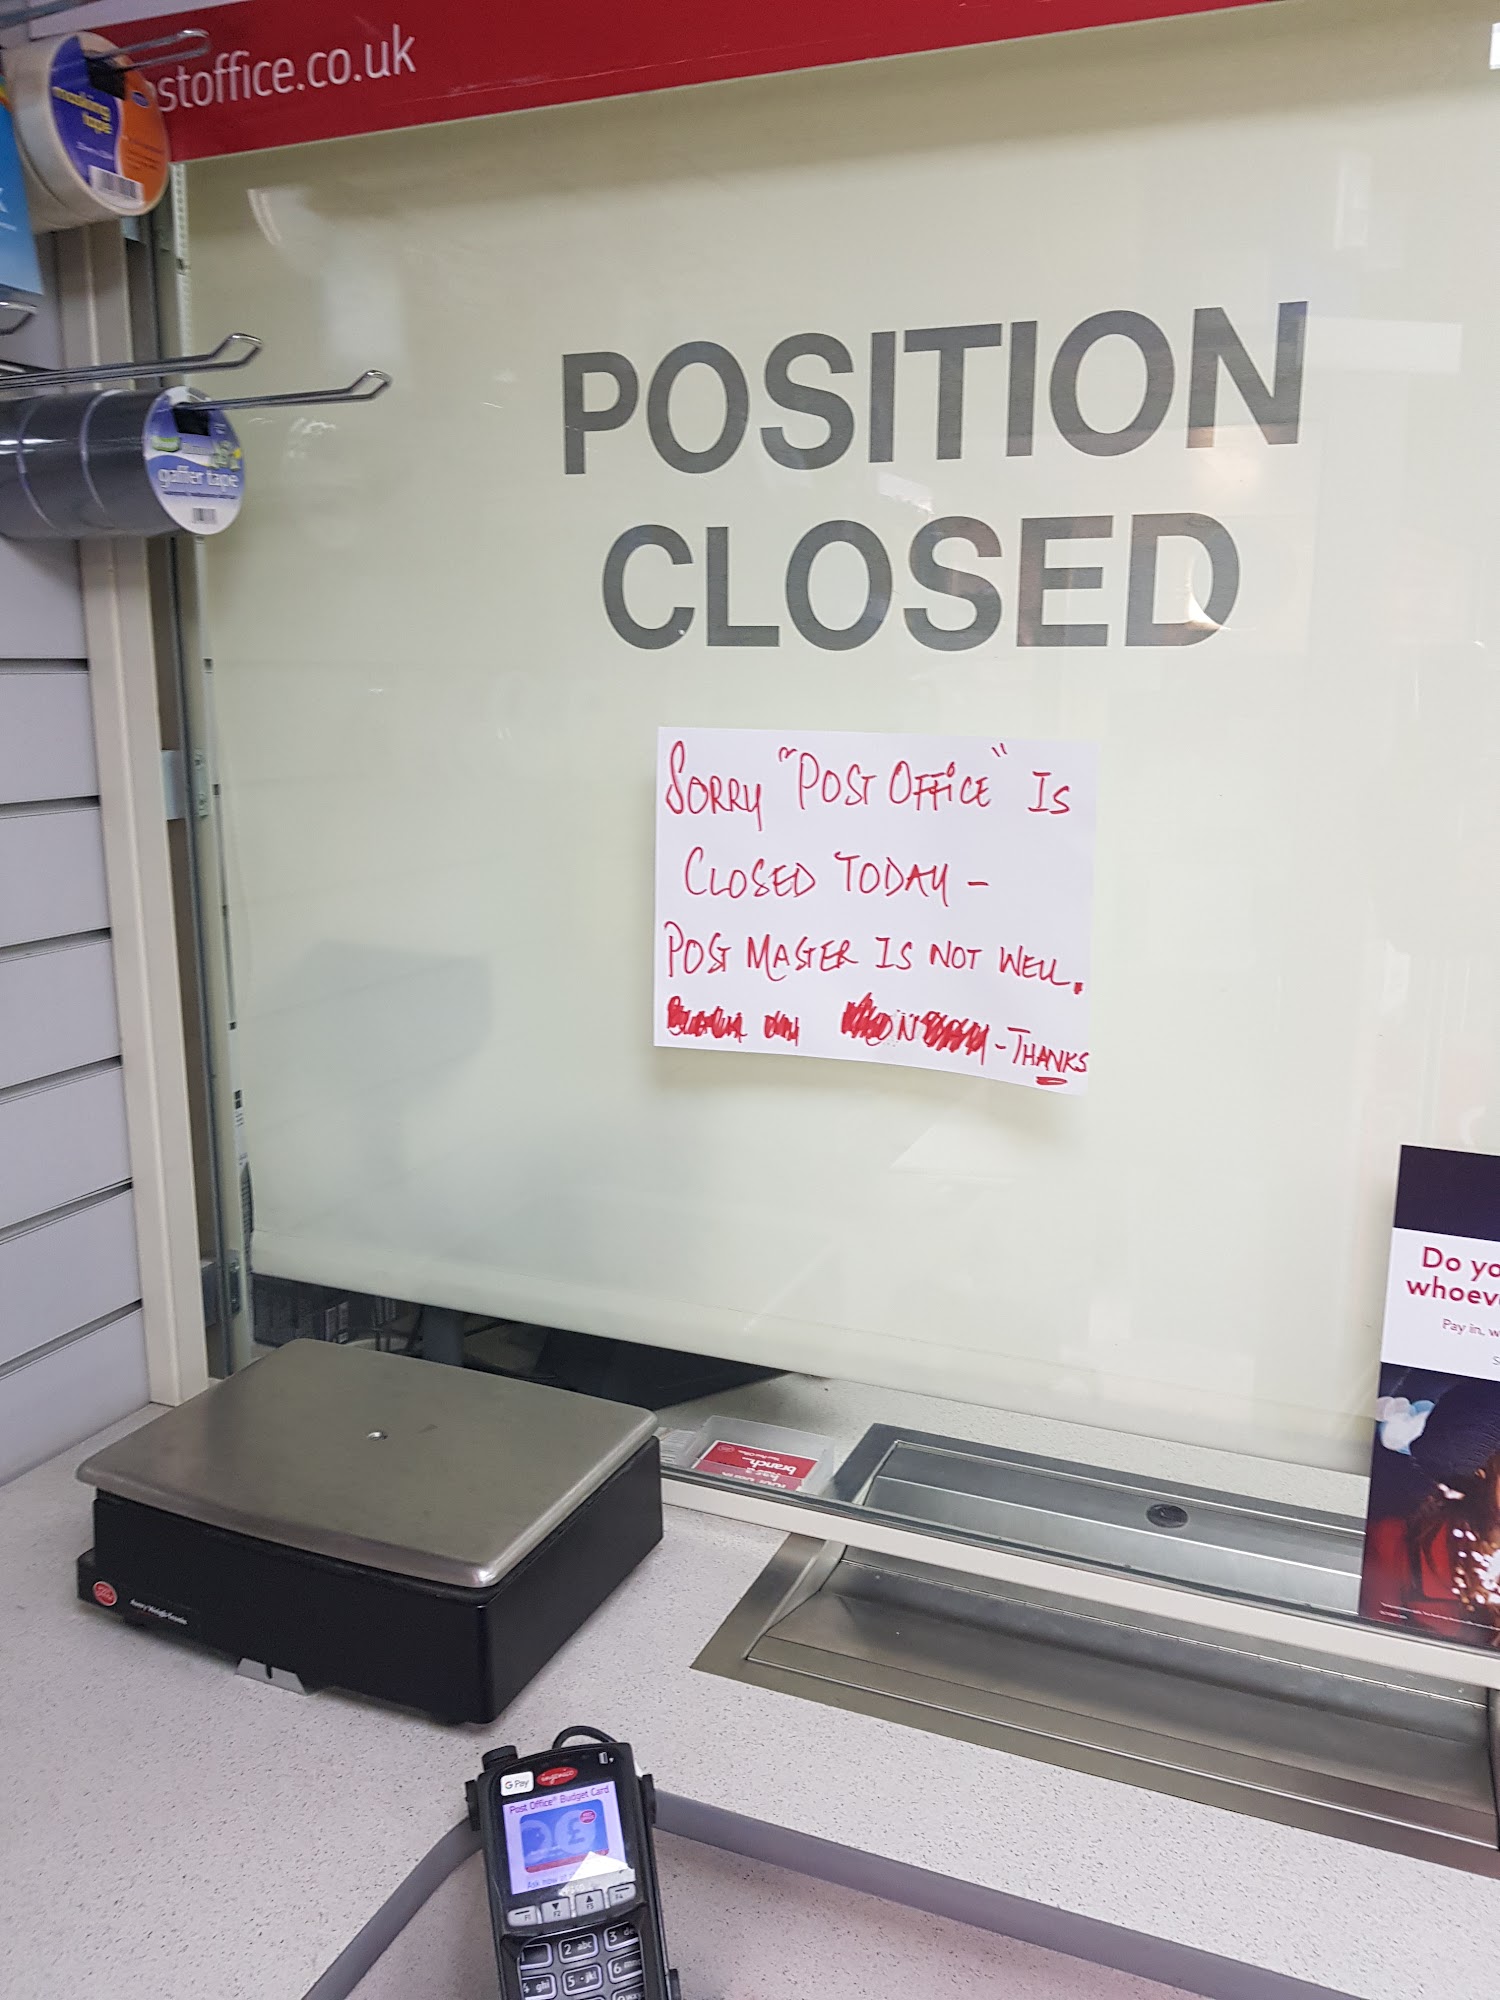 ostoffice.co.uk
masking
tape
gaffer tape
POSITION
CLOSED
SORRY "POST OFFICE" IS
CLOSED TODAY -
POST MASTER IS NOT WELL.
- THANKS
Do yo
whoev
Pay in, w
S
branch...
Avery Weigh-Tronix
G Pay
ingenico
Post Office® Budget Card
£
Ask now at
F1 F2 F3 F4
2 abc 3 de
4 ghi 5 jkl 6 m